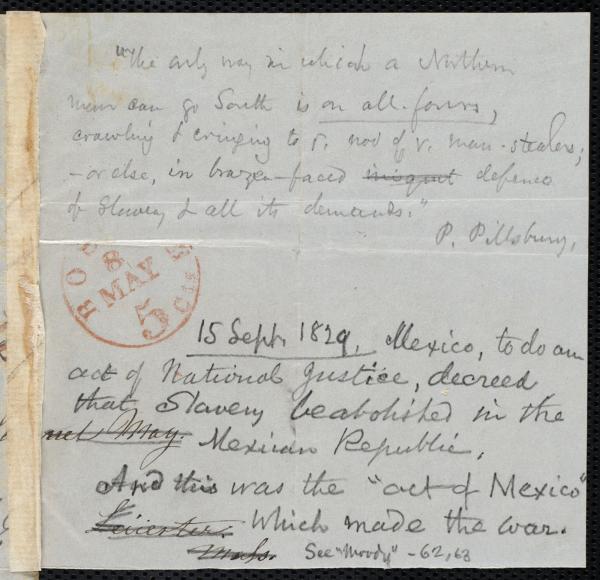 "The only way in which a Northern
man can go South is on all-fours,
crawling & cringing to r. nod of r. man-stealers;
- or else, in brazen-faced defence
of Slavery & all its demands."
P. Pillsbury.
BOS
8
MAY
5 Cts
15 Sept. 1829, Mexico, to do an
act of National Justice, decreed
that Slavery be abolished in the
May. Mexican Republic,
And this was the "act of Mexico"
Leicester. Which made the war.
Mass. See "Moody" - 62, 63